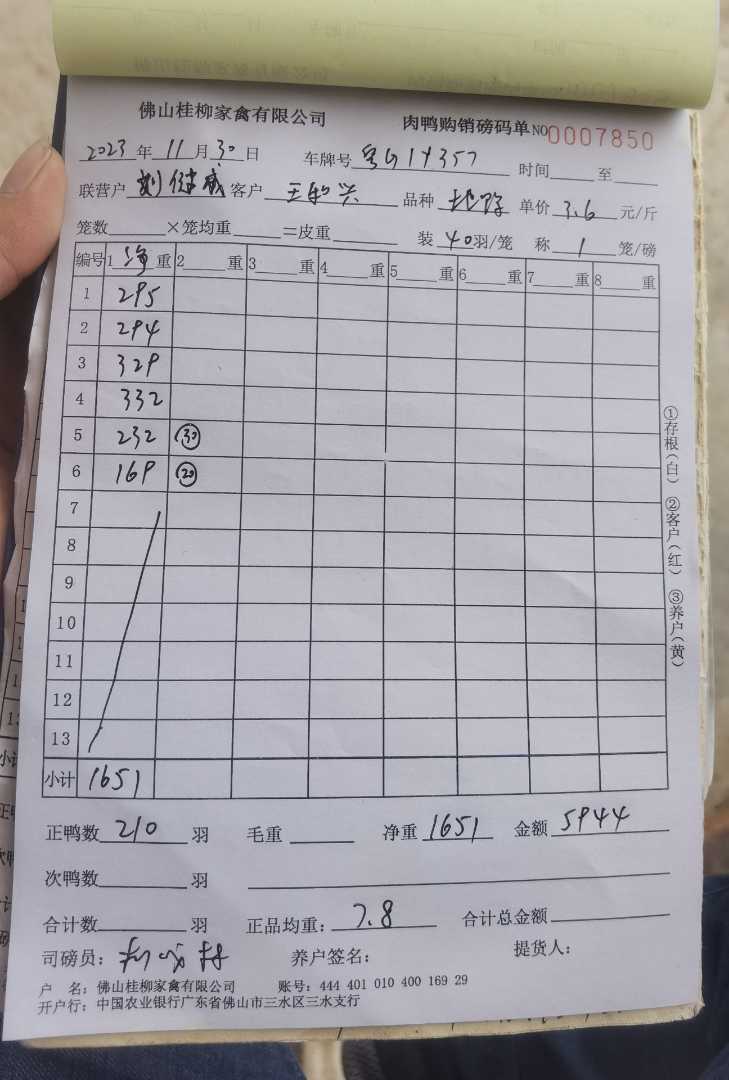 佛山桂柳家禽有限公司 肉鸭购销磅码单 NO0007850
2023年11月30日 车牌号 粤G1Y357 时间 至
联营户 客户 王和兴 品种 单价 3.6 元/斤
笼数 ×笼均重 =皮重 装 40羽/笼 称 1 笼/磅
编号 1 净 重 2 重 3 重 4 重 5 重 6 重 7 重 8 重
1 295
2 294
3 329
4 332
5 232 30
6 169 20
7
8
9
10
11
12
13
小计 1651
①存根(白) ②客户(红) ③养户(黄)
正鸭数 210 羽 毛重 净重 1651 金额 5944
次鸭数 羽
合计数 羽 正品均重: 7.8 合计总金额
司磅员: 养户签名: 提货人:
户 名: 佛山桂柳家禽有限公司 账号: 444 401 010 400 169 29
开户行: 中国农业银行广东省佛山市三水区三水支行